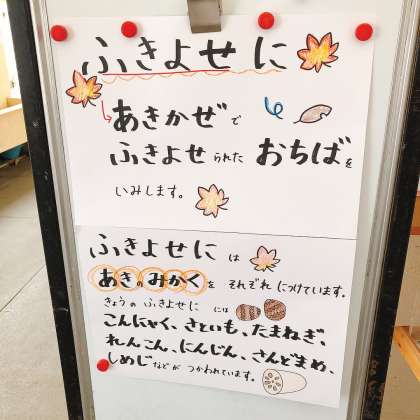 ふきよせに
あきかぜで
ふきよせられた おちばを
いみします。
ふきよせには
あきのみかくを それぞれ につけています。
きょうの ふきよせに には
こんにゃく、さといも、たまねぎ、
れんこん、にんじん、さんどまめ、
しめじなどが つかわれています。